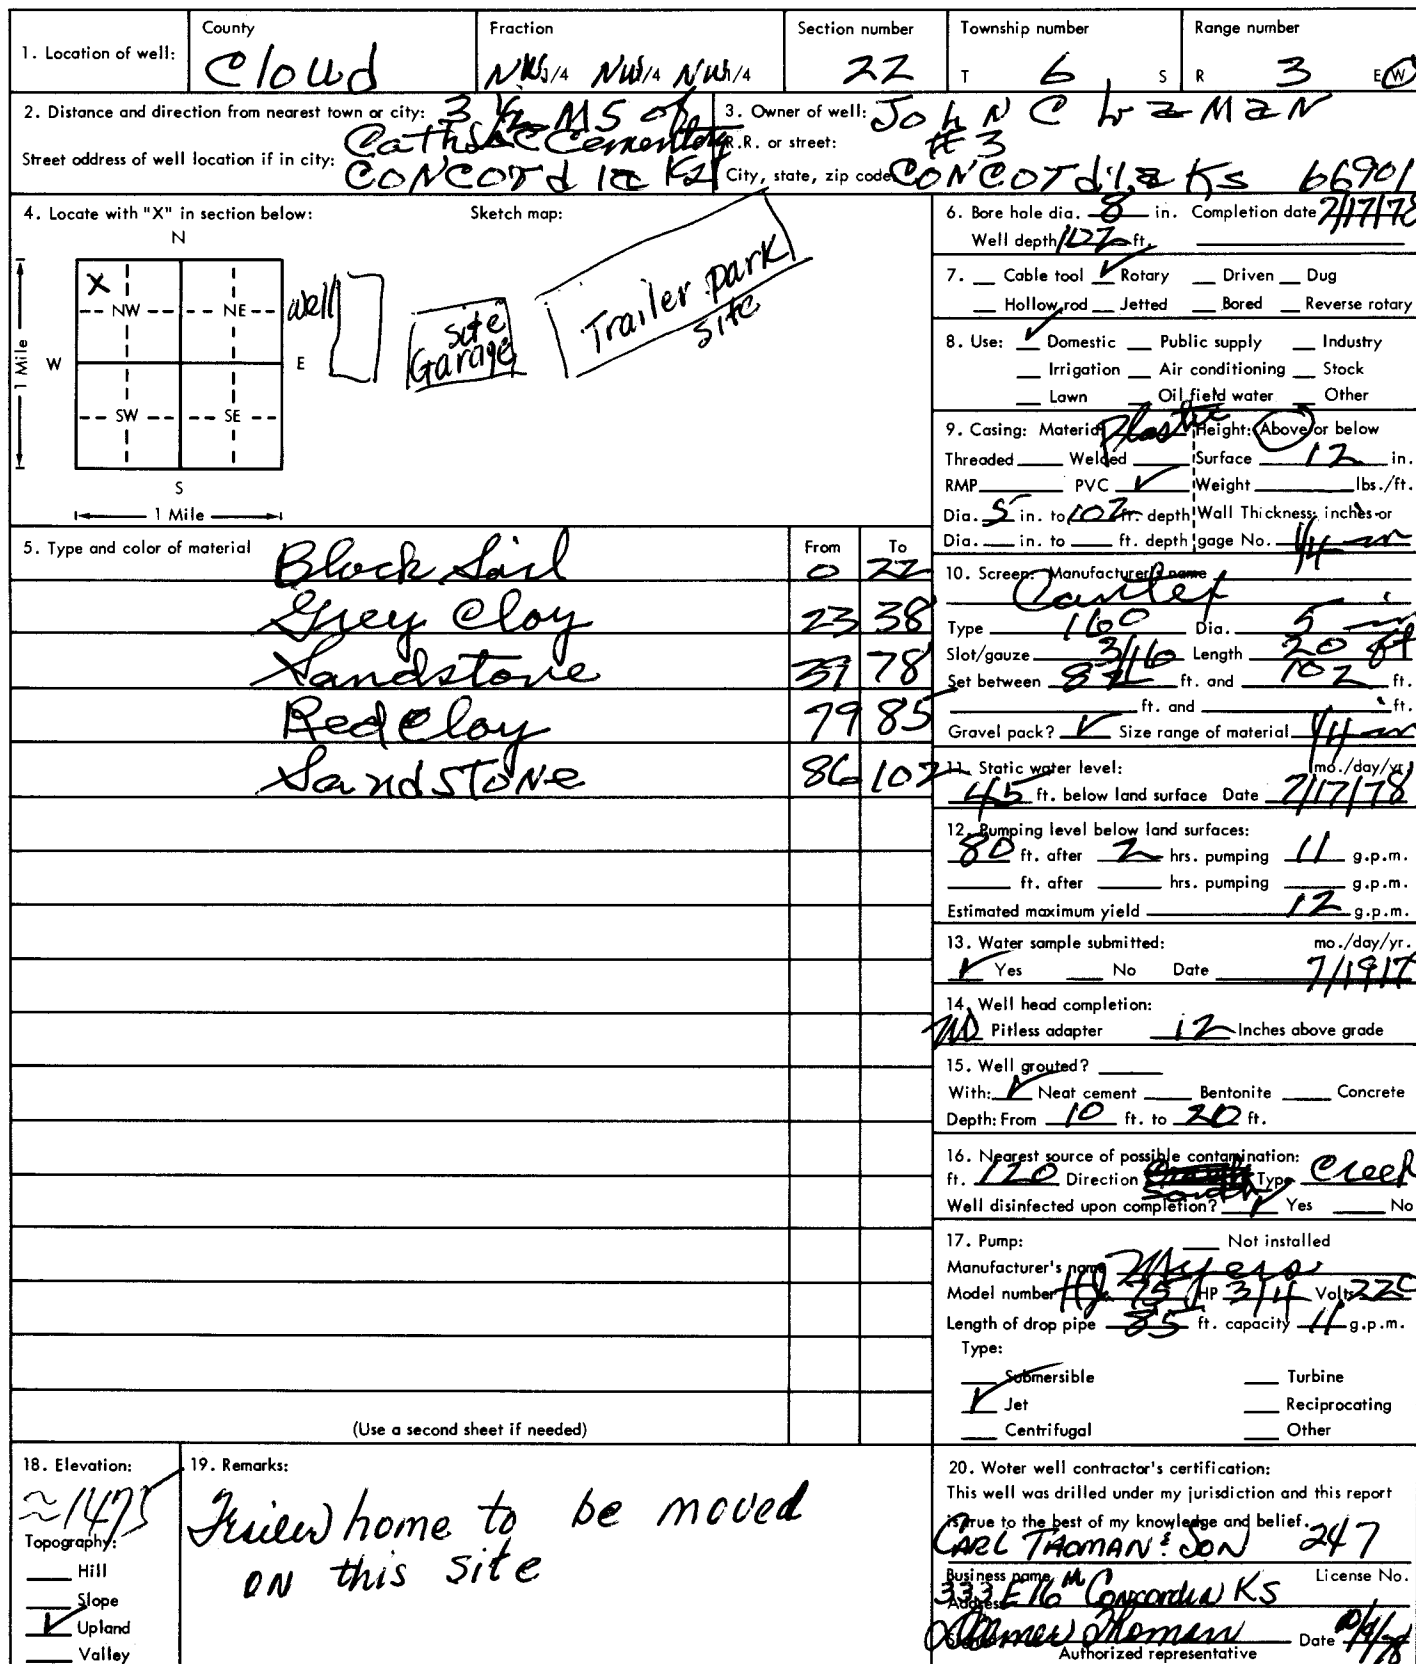 County Fraction Section number Township number Range number
1. Location of well: Cloud NW 1/4 NW 1/4 NW 1/4 22 T 6 S R 3 E W
2. Distance and direction from nearest town or city: 3 1/2 MS of
Catholic Cementery
Street address of well location if in city: CONCOrdia Ks
3. Owner of well: JohN C
R.R. or street: # 3
City, state, zip code CONCOrdia Ks 66901
4. Locate with "X" in section below: Sketch map:
N
X
NW NE
W E
SW SE
S
1 Mile
1 Mile
Well
Site
Garage
Trailer park
site
5. Type and color of material From To
Black Soil 0 22
Grey Clay 23 38
Sandstone 39 78
Red Clay 79 85
SandSTONe 86 102
(Use a second sheet if needed)
6. Bore hole dia. 8 in. Completion date 7/17/78
Well depth 102 ft.
7. Cable tool Rotary Driven Dug
Hollow rod Jetted Bored Reverse rotary
8. Use: Domestic Public supply Industry
Irrigation Air conditioning Stock
Lawn Oil field water Other
9. Casing: Material Plastic Height: Above or below
Threaded Welded Surface 12 in.
RMP PVC Weight lbs./ft.
Dia. 5 in. to 102 ft. depth Wall Thickness: inches or
Dia. in. to ft. depth gage No. 1/4 in
10. Screen: Manufacturer's name
Cantex
Type 160 Dia. 5 in
Slot/gauze 3/16 Length 20 ft
Set between 82 ft. and 102 ft.
ft. and ft.
Gravel pack? Size range of material 1/4 in
11. Static water level: mo./day/yr.
45 ft. below land surface Date 7/17/78
12. Pumping level below land surfaces:
80 ft. after 2 hrs. pumping 11 g.p.m.
ft. after hrs. pumping g.p.m.
Estimated maximum yield 12 g.p.m.
13. Water sample submitted: mo./day/yr.
Yes No Date 7/19/7
14. Well head completion:
NO Pitless adapter 12 Inches above grade
15. Well grouted?
With: Neat cement Bentonite Concrete
Depth: From 10 ft. to 20 ft.
16. Nearest source of possible contamination:
ft. 120 Direction South Type Creek
Well disinfected upon completion? Yes No
17. Pump: Not installed
Manufacturer's name Myers
Model number HJ 75 HP 3/4 Volts 220
Length of drop pipe 85 ft. capacity 11 g.p.m.
Type:
Submersible Turbine
Jet Reciprocating
Centrifugal Other
18. Elevation:
≈1475
Topography:
Hill
Slope
Upland
Valley
19. Remarks:
home to be moved
ON this site
20. Water well contractor's certification:
This well was drilled under my jurisdiction and this report
is true to the best of my knowledge and belief.
CARL THOMAN & SON 247
Business name License No.
333 E 16th Concordia KS
Address
Thoman Date
Authorized representative